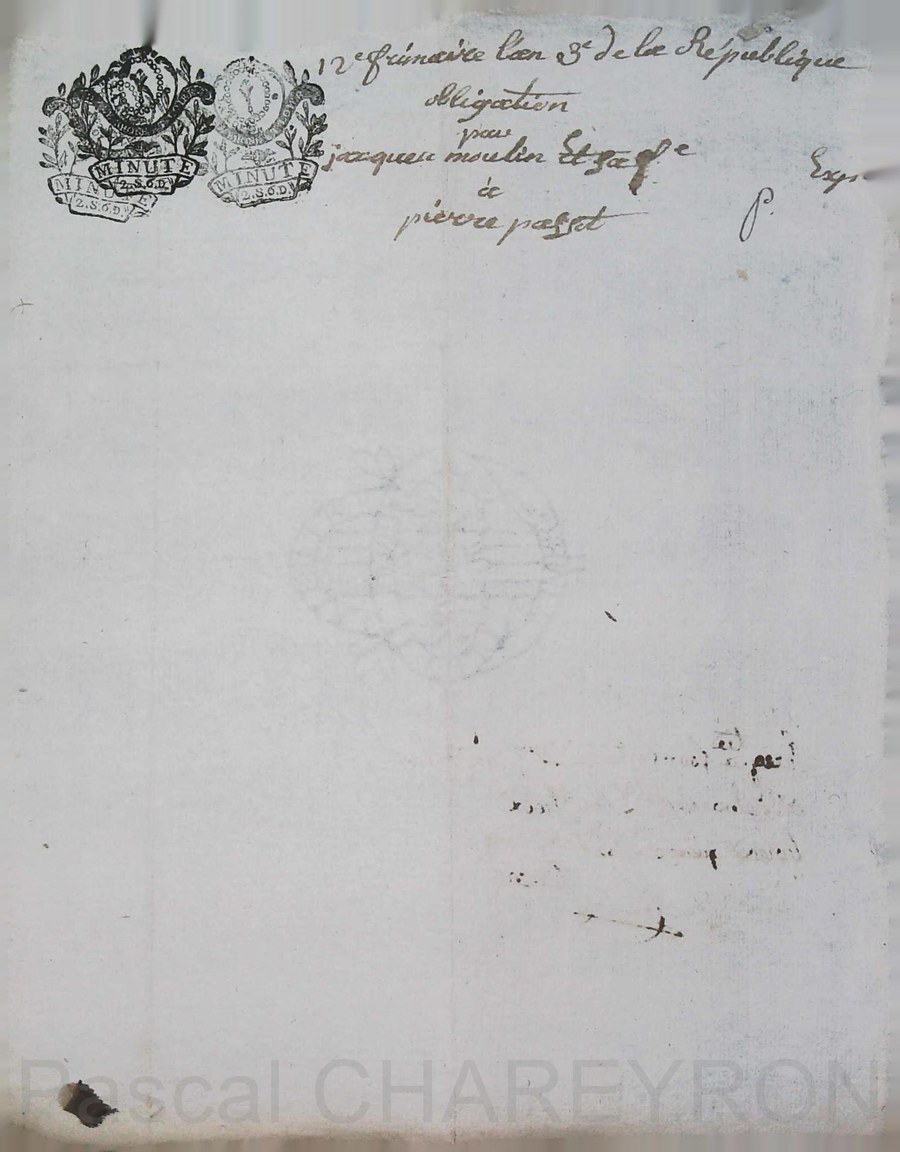 12e frimaire l'an 3e de la République
obligation
par
jacques moulin Et sa fe
à
pierre passot
Exp
P.
MINUTE
2.S.6.D.
MINUTE
2.S.6.D.
MINUTE
2.S.6.D.
Pascal CHAREYRON